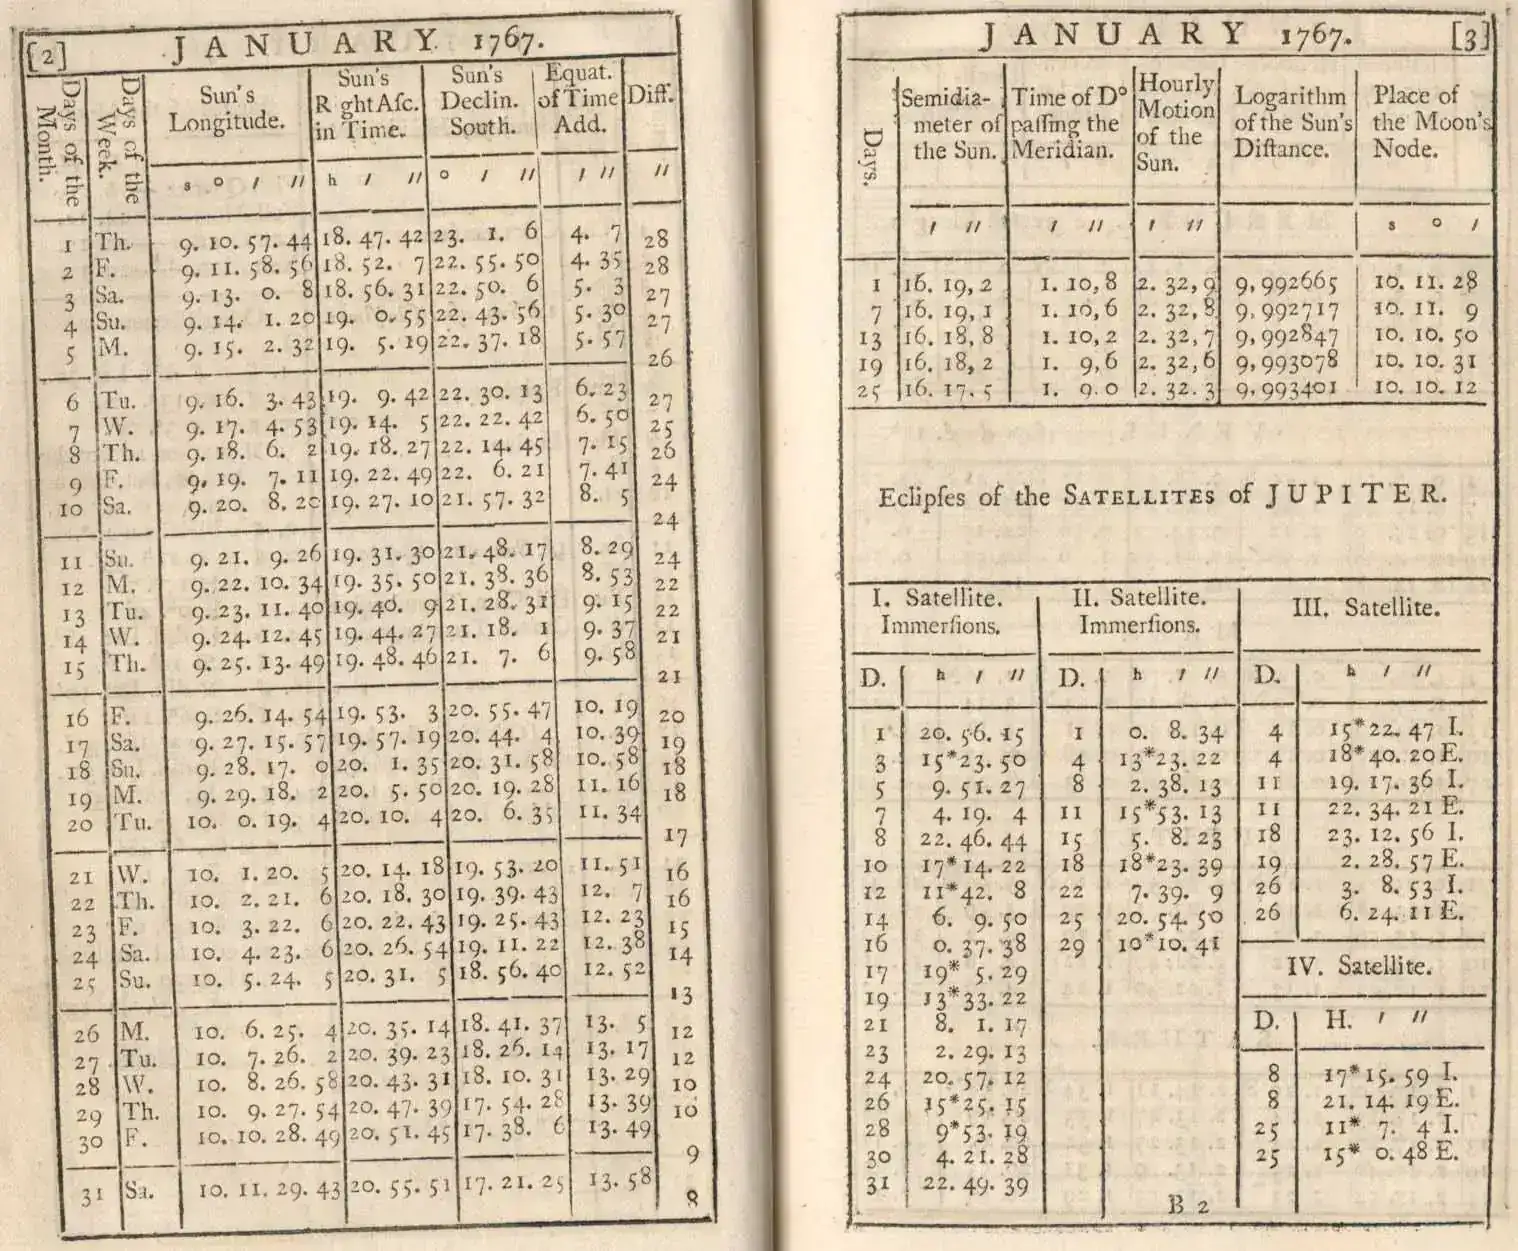 [2] JANUARY 1767.
Days of the Month. Days of the Week. Sun's Longitude. Sun's R ghtAſc. in Time. Sun's Declin. South. Equat. of Time Add. Diff.
s o / // h / // o / // / // //
1 Th. 9. 10. 57. 44 18. 47. 42 23. 1. 6 4. 7 28
2 F. 9. 11. 58. 56 18. 52. 7 22. 55. 50 4. 35 28
3 Sa. 9. 13. 0. 8 18. 56. 31 22. 50. 6 5. 3 27
4 Su. 9. 14. 1. 20 19. 0. 55 22. 43. 56 5. 30 27
5 M. 9. 15. 2. 32 19. 5. 19 22. 37. 18 5. 57 26
6 Tu. 9. 16. 3. 43 19. 9. 42 22. 30. 13 6. 23 27
7 W. 9. 17. 4. 53 19. 14. 5 22. 22. 42 6. 50 25
8 Th. 9. 18. 6. 2 19. 18. 27 22. 14. 45 7. 15 26
9 F. 9. 19. 7. 11 19. 22. 49 22. 6. 21 7. 41 24
10 Sa. 9. 20. 8. 20 19. 27. 10 21. 57. 32 8. 5 24
11 Su. 9. 21. 9. 26 19. 31. 30 21. 48. 17 8. 29 24
12 M. 9. 22. 10. 34 19. 35. 50 21. 38. 36 8. 53 22
13 Tu. 9. 23. 11. 40 19. 40. 9 21. 28. 31 9. 15 22
14 W. 9. 24. 12. 45 19. 44. 27 21. 18. 1 9. 37 21
15 Th. 9. 25. 13. 49 19. 48. 46 21. 7. 6 9. 58 21
16 F. 9. 26. 14. 54 19. 53. 3 20. 55. 47 10. 19 20
17 Sa. 9. 27. 15. 57 19. 57. 19 20. 44. 4 10. 39 19
18 Su. 9. 28. 17. 0 20. 1. 35 20. 31. 58 10. 58 18
19 M. 9. 29. 18. 2 20. 5. 50 20. 19. 28 11. 16 18
20 Tu. 10. 0. 19. 4 20. 10. 4 20. 6. 35 11. 34 17
21 W. 10. 1. 20. 5 20. 14. 18 19. 53. 20 11. 51 16
22 Th. 10. 2. 21. 6 20. 18. 30 19. 39. 43 12. 7 16
23 F. 10. 3. 22. 6 20. 22. 43 19. 25. 43 12. 23 15
24 Sa. 10. 4. 23. 6 20. 26. 54 19. 11. 22 12. 38 14
25 Su. 10. 5. 24. 5 20. 31. 5 18. 56. 40 12. 52 13
26 M. 10. 6. 25. 4 20. 35. 14 18. 41. 37 13. 5 12
27 Tu. 10. 7. 26. 2 20. 39. 23 18. 26. 14 13. 17 12
28 W. 10. 8. 26. 58 20. 43. 31 18. 10. 31 13. 29 10
29 Th. 10. 9. 27. 54 20. 47. 39 17. 54. 28 13. 39 10
30 F. 10. 10. 28. 49 20. 51. 45 17. 38. 6 13. 49 9
31 Sa. 10. 11. 29. 43 20. 55. 51 17. 21. 25 13. 58 8
JANUARY 1767. [3]
Days. Semidiameter of the Sun. Time of D° paſſing the Meridian. Hourly Motion of the Sun. Logarithm of the Sun's Diſtance. Place of the Moon's Node.
/ // / // / // s o /
1 16. 19, 2 1. 10, 8 2. 32, 9 9,992665 10. 11. 28
7 16. 19, 1 1. 10, 6 2. 32, 8 9,992717 10. 11. 9
13 16. 18, 8 1. 10, 2 2. 32, 7 9,992847 10. 10. 50
19 16. 18, 2 1. 9, 6 2. 32, 6 9,993078 10. 10. 31
25 16. 17. 5 1. 9. 0 2. 32. 3 9,993401 10. 10. 12
Eclipſes of the SATELLITES of JUPITER.
I. Satellite. Immerſions.
D. h / //
1 20. 56. 15
3 15*23. 50
5 9. 51. 27
7 4. 19. 4
8 22. 46. 44
10 17*14. 22
12 11*42. 8
14 6. 9. 50
16 0. 37. 38
17 19* 5. 29
19 13*33. 22
21 8. 1. 17
23 2. 29. 13
24 20. 57. 12
26 15*25. 15
28 9*53. 19
30 4. 21. 28
31 22. 49. 39
II. Satellite. Immerſions.
D. h / //
1 0. 8. 34
4 13*23. 22
8 2. 38. 13
11 15*53. 13
15 5. 8. 23
18 18*23. 39
22 7. 39. 9
25 20. 54. 50
29 10*10. 41
III. Satellite.
D. h / //
4 15*22. 47 I.
4 18*40. 20 E.
11 19. 17. 36 I.
11 22. 34. 21 E.
18 23. 12. 56 I.
19 2. 28. 57 E.
26 3. 8. 53 I.
26 6. 24. 11 E.
IV. Satellite.
D. H. / //
8 17*15. 59 I.
8 21. 14. 19 E.
25 11* 7. 4 I.
25 15* 0. 48 E.
B 2